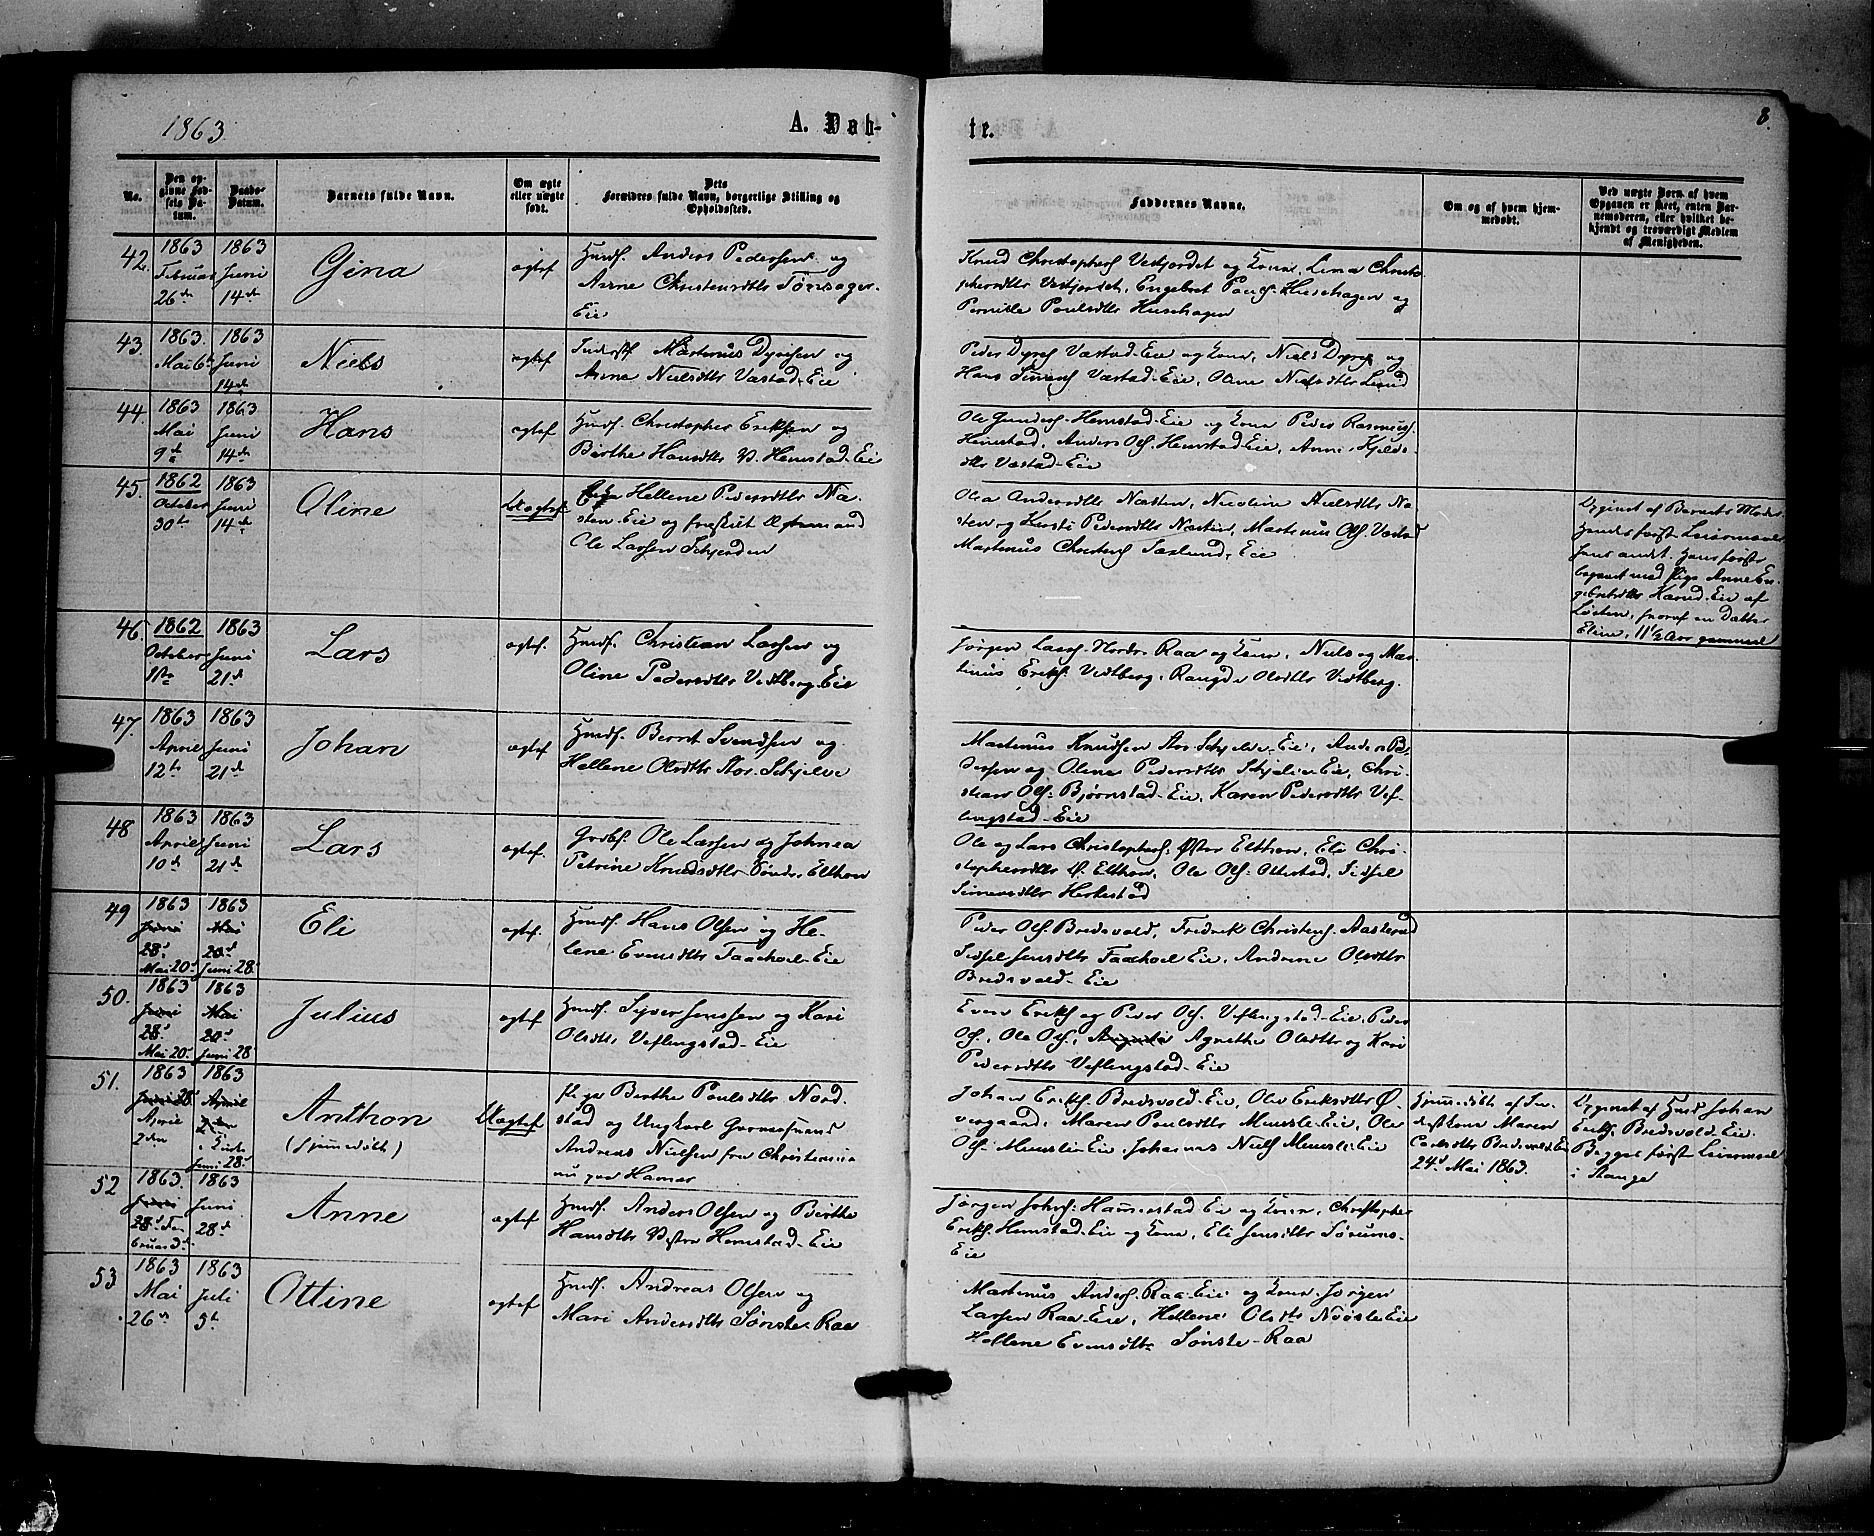 1863.
A. Døb-
te.
8.
No.
Den opgivne Fødsels Datum.
Daabs-Datum.
Barnets fulde Navn.
Om ægte eller uægte født.
Dets Forældres fulde Navn, borgerlige Stilling og Opholdssted.
Faddernes Navne.
Om og af hvem hjemmedøbt.
Ved uægte Børn af hvem Opgaven er skeet, enten Barnemoderen, eller hvilket bekjendt og troværdigt Medlem af Menigheden.
42.
1863 Februar 26de
1863 Juni 14de
Gina
ægtef
Huusf. Anders Pedersen og
Anne Christensdtr Tønsager-
Eie
Knud Christophers. Vestjordet og Kone, Lina Christo-
phersdtr Vestjordet, Engebret Pouls. Huushagen og
Pernille Poulsdtr Huushagen
43.
1863. Mai 6te
1863 Juni 14de
Niels
ægtef
Inderst Martenus Dyresen og
Anne Nielsdtr Vastad-Eie
Peder Dyres. Vastad-Eie og Kone, Niels Dyres. og
Hans Simens. Vastad-Eie, Oline Nielsdtr Lund
44.
1863 Mai 9de
1863 Juni 14de
Hans
ægtef
Huusf. Christopher Eriksen og
Berthe Hansdtr V. Hemstad-Eie
Ole Gunders. Hemstad-Eie og Kone Peder Rasmus.
Hemstad, Anders Ols. Hemstad-Eie, Anne Kjelds-
dtr Vastad-Eie
45.
1862 October 30te
1863 Juni 14de
Oline
Uægtef.
Pige Hellene Pedersdtr Næ-
sten Eie og fraskilt Ægtemand
Ole Larsen Schjerden
Olea Andersdtr Næsten, Nicoline Nielsdtr Næ-
sten og Kersti Pedersdtr Næsten, Martinus Ols. Vastad
Martenus Christens. Sælund, Eie
Opgivet af Barnets Moder
Hendes første Leiermaal
hans andet. Hans første
begaaet med Pige Anne En-
gebretsdtr Kærud-Eie af
Løiten, hvoraf en Datter
Eline, 11½ Aar gammel
46.
1862 October 11te
1863 Juni 21de
Lars
ægtef.
Huusf. Christian Larsen og
Oline Pedersdtr Vedtberg-Eie
Jørgen Lars. Nordre Raa og Kone, Niels og Mar-
tinus Eriks. Vedtberg, Rangdi Olsdtr Vedtberg.
47.
1863 April 12te
1863 Juni 21de
Johan
ægtef
Huusf. Bernt Svendsen og
Hellene Olsdtr Stor-Schjelve
Martenus Knudsen Stor Schjelve-Eie, Anders Pe-
dersen og Olena Pedersdtr Schjelve-Eie, Chri-
stian Ols. Bjørnstad-Eie, Karen Pedersdtr Vef-
lingstad-Eie
48
1863 April 10de
1863 Juni 21de
Lars
ægtef.
Grdbf. Ole Larsen og Johnea
Petrine Knudsdtr Søndr. Elthon
Ole og Lars Christophers. Øster Elthon, Eli Chri-
stophersdtr Ø. Elthon, Ole Ols. Ollestad, Sidsel
Simensdtr Herkestad
49
1863 Juni 28de Mai 20de
1863 Mai 20de Juni 28de
Eli
ægtef.
Huusf. Hans Olsen og He-
lene Evensdtr Faachoel-Eie
Peder Ols. Bredsvold, Fredrik Christens. Aasterud
Sidsel Jensdtr Faachoel Eie, Andrine Olsdtr
Bredsvold-Eie
50.
1863 Juni 28de Mai 20de
1863 Mai 20de Juni 28
Julius
ægtef
Huusf. Syver Jenssen og Kari
Olsdtr Veflingstad-Eie
Even Eriks. og Peder Ols. Veflingstad-Eie, Peder
Ols., Ole Ols., Agnethe Olsdtr og Kari
Pedersdtr Veflingstad-Eie
51.
1863 Juni 28 April 2den
1863 April 2den i Kirke Juni 28de
Anthon
(hjemmedøbt)
Uægtef
Pige Berthe Poulsdtr Nord-
stad og Ungkarl Garversvend
Andreas Nielsen fra Christiania
nu paa Hamar
Johan Eriks. Bredsvold-Eie, Olea Eriksdtr Ø-
vergaard, Maren Poulsdtr Meusle-Eie, Ole
Ols. Meusle-Eie, Johannes Niels. Meusle-Eie
Hjemmedøbt af In-
derstkone Maren
Carlsdtr Bredsvold-Eie
24de Mai 1863.
Opgivet af Huusf. Johan
Eriks. Bredsvold-Eie.
Begges første Leiermaal
i Stange
52
1863. Juni 28de Februar 3de
1863 Juni 28de
Anne
ægtef
Huusf. Anders Olsen og Berthe
Hansdtr Vestre Hemstad-Eie
Jørgen Johs. Hammerstad Eie og Kone, Christopher
Eriks. Hemstad-Eie og Kone, Eli Jensdtr Sørums-
Eie
53
1863 Mai 26de
1863 Juli 5te
Ottine
ægtef
Huusf. Andreas Olsen og
Mari Andersdtr Sønste-Raa
Martenus Anders. Raa-Eie og Kone, Jørgen
Larsen Raa-Eie, Hellene Olsdtr Nøisle-Eie
Hellene Evensdtr Sønste-Raa